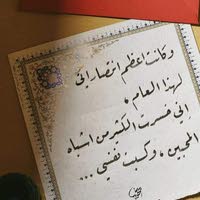 وكانت اعظم انتصاراتي
لهذا العام ،
اني خسرت الكثير من اشباه
المحبين ، وكسبت نفسي ...